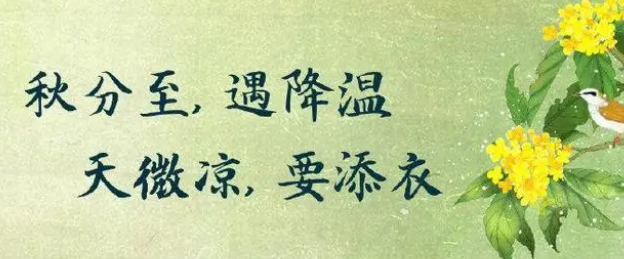 秋分至,遇降温
天微凉,要添衣